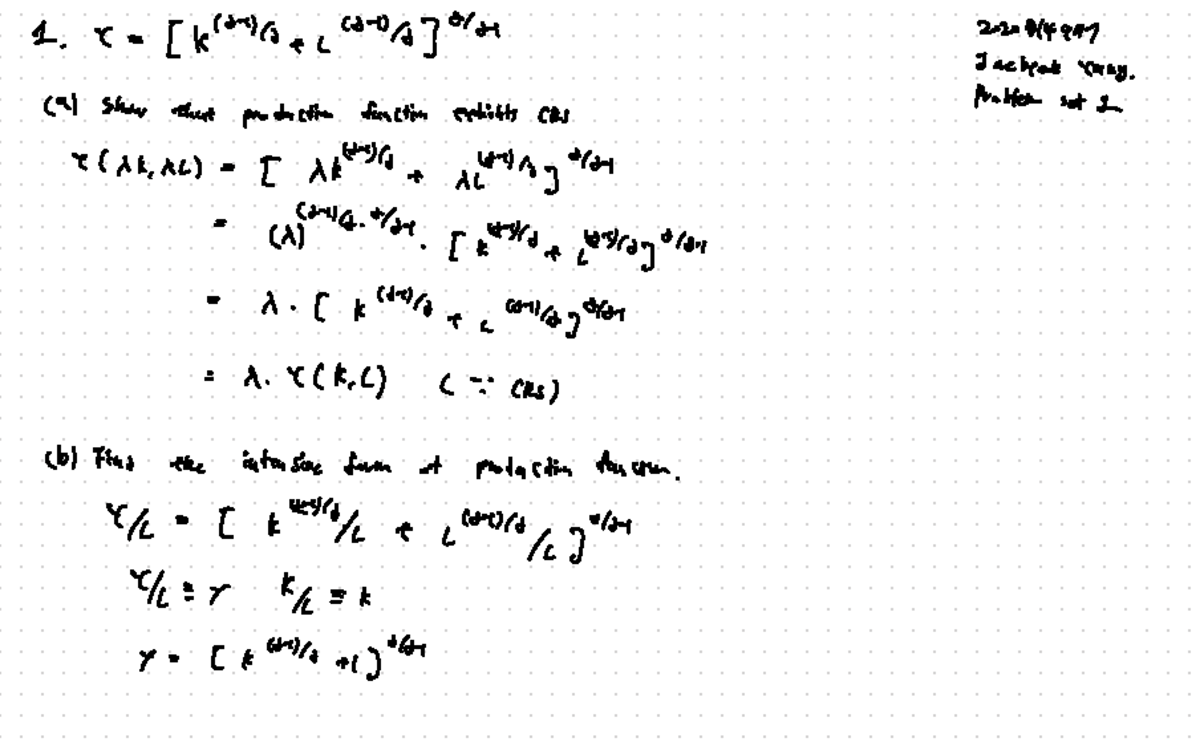 1. Y = [K^(σ-1)/σ + L^(σ-1)/σ]^σ/σ-1
Problem set 1
(a) Show that production function exhibits CRS
Y(λK, λL) = [ λK^(σ-1)/σ + λL^(σ-1)/σ ]^σ/σ-1
= (λ)^(σ-1)/σ · σ/σ-1 · [ K^(σ-1)/σ + L^(σ-1)/σ ]^σ/σ-1
= λ · [ K^(σ-1)/σ + L^(σ-1)/σ ]^σ/σ-1
= λ · Y(K, L) ( ∵ CRS)
(b) Find the intensive form of production function.
Y/L = [ K^(σ-1)/σ/L + L^(σ-1)/σ/L ]^σ/σ-1
Y/L ≡ y K/L ≡ k
y = [ k^(σ-1)/σ + 1 ]^σ/σ-1